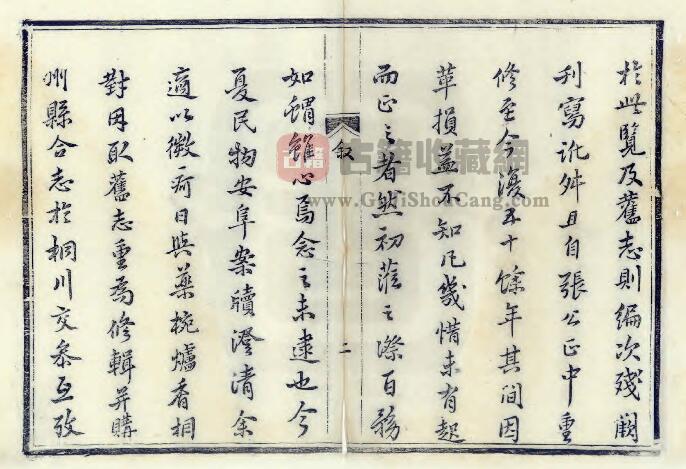 於此覽及舊志則編次殘闕
刋寫訛舛且自張公正中重
修至今復五十餘年其間因
革損益不知凡幾惜未有起
而正之者然初蒞之際百務
叙
二
如蝟雖心焉念之未逮也今
夏民物安阜案牘澄清余
適以微疴日與藥椀爐香相
對因取舊志重為修輯并購
州縣合志於桐川交叅互攷
古籍收藏網
www.GujiShouCang.com